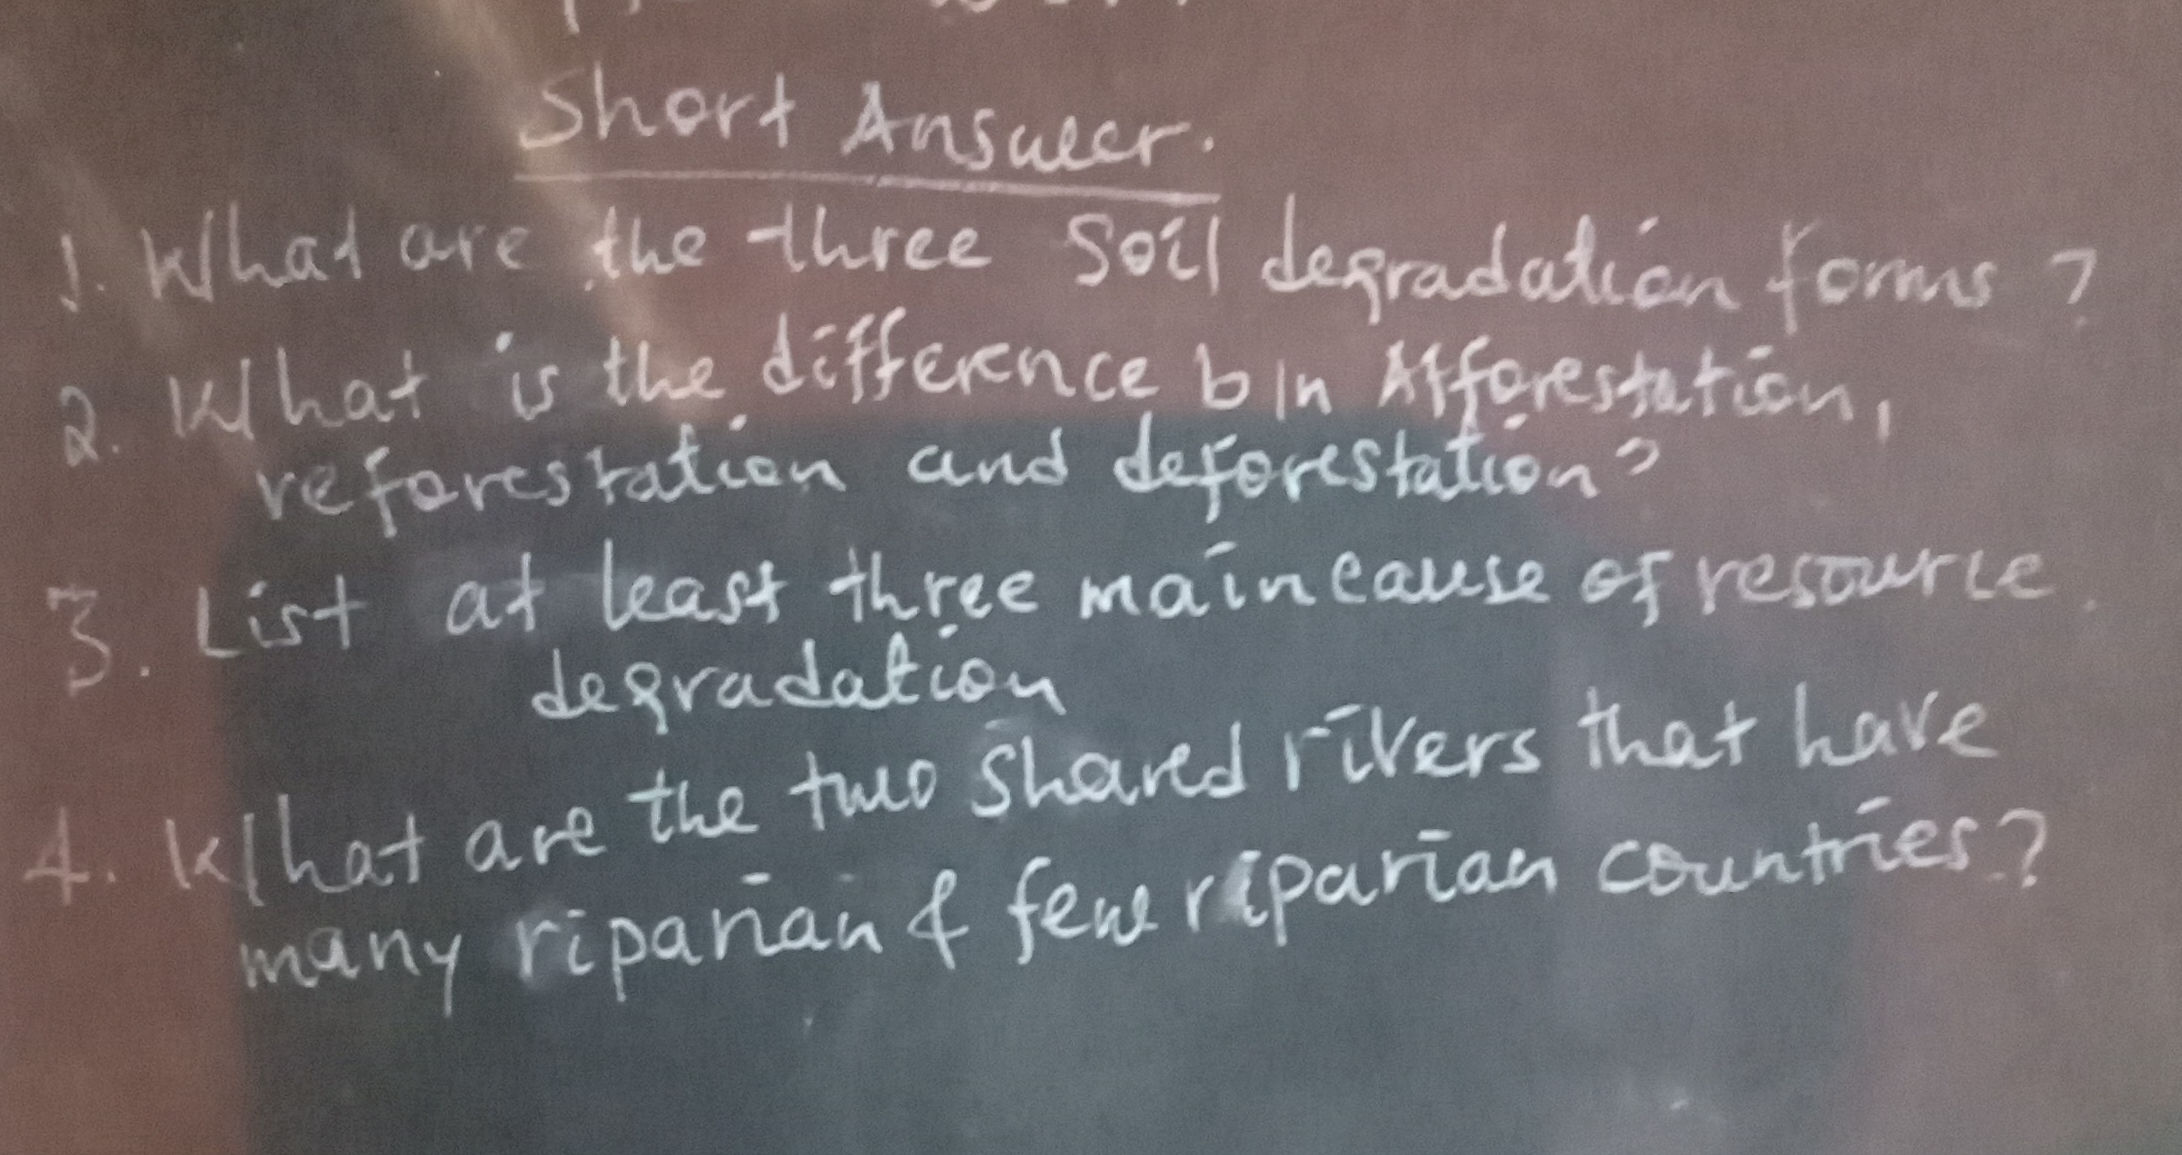 Short Answer.
1. What are the three Soil degradation forms?
2. What is the difference b/n Afforestation,
reforestation and deforestation?
3. List at least three main cause of resource
degradation
4. What are the two shared rivers that have
many riparian & few riparian countries?